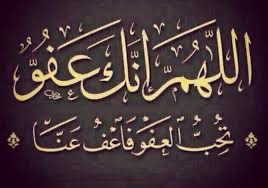 اللَّهُمَّ إِنَّكَ عَفُوٌّ
تُحِبُّ الْعَفْوَ فَاعْفُ عَنَّا